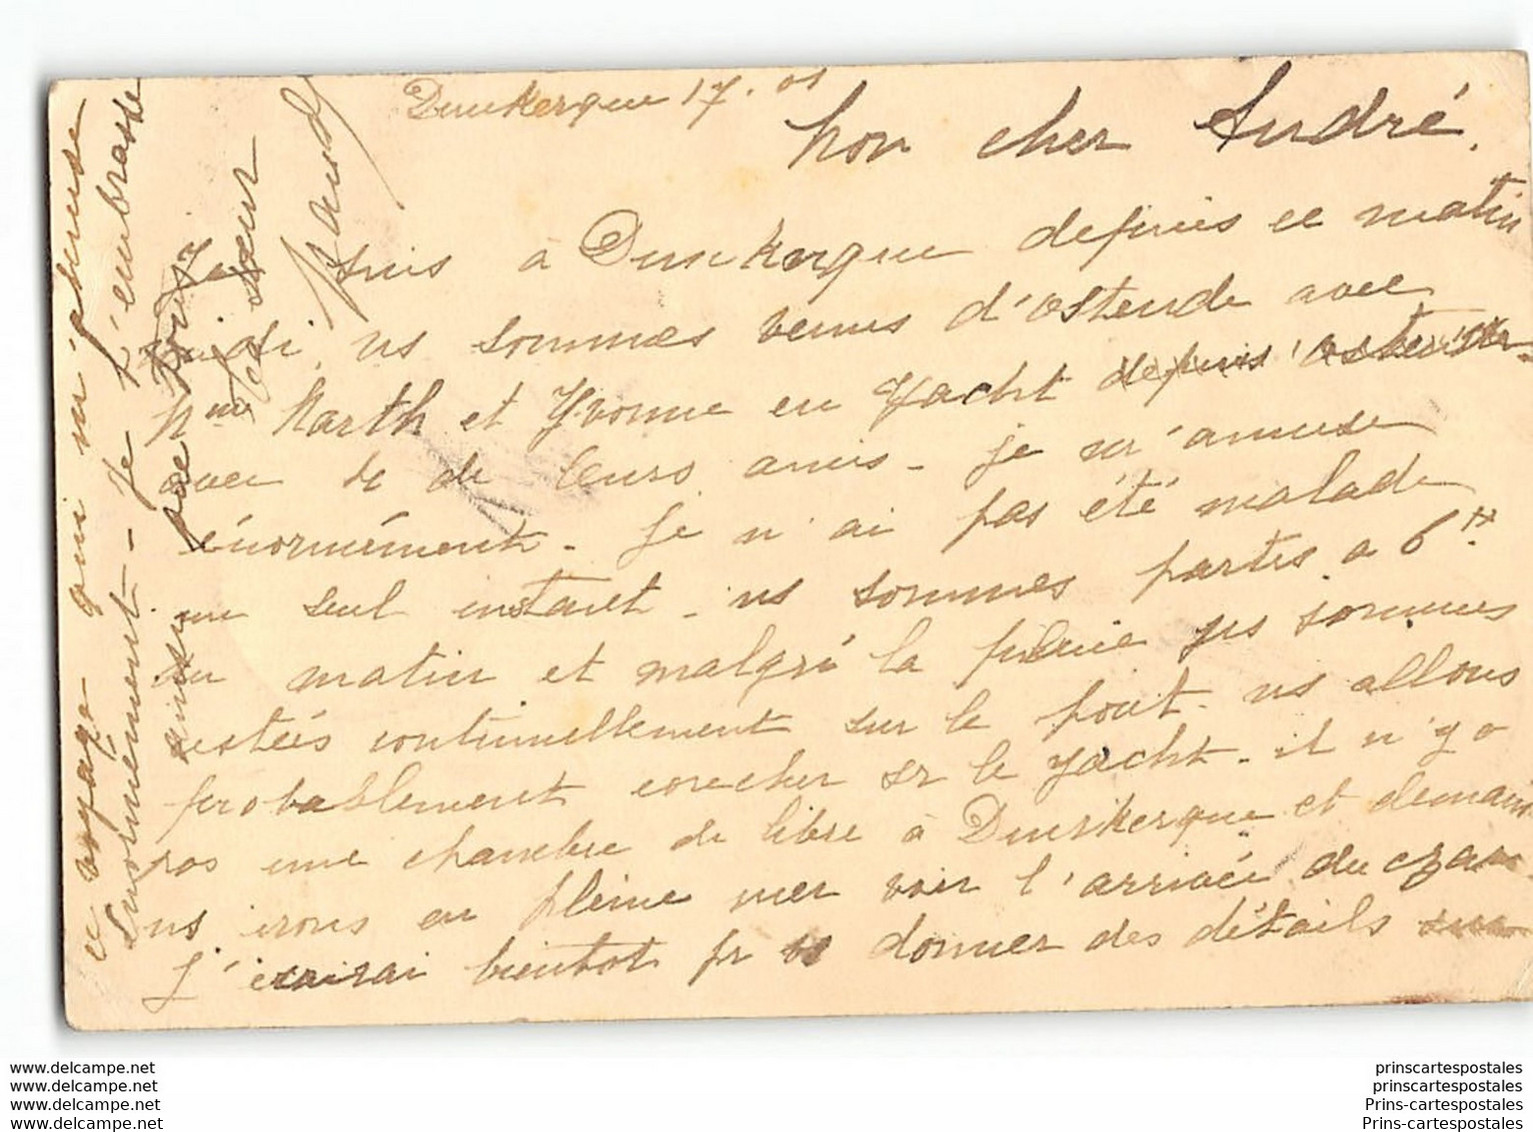 Dunkerque 17. 01
Mon cher André.
Je suis a Dunkerque depuis ce matin
midi, ns sommes venus d'Ostende avec
Mme Marth et Yvonne en Yacht depuis ostende
avec de leurs amis - je m'amuse
énormément. Je n'ai pas été malade
un seul instant - ns sommes partis a 6 H.
du matin et malgré la pluie ns sommes
restées continuellement sur le pont. ns allons
probablement coucher sr le yacht. il n'y a
pas une chambre de libre à Dunkerque et demain
ns irons en pleine mer voir l'arrivée du czar
J'écrirai bientot pr vs donner des détails sur
ce voyage qui m'amuse
énormément - Je t'embrasse
ainsi que
Ta sœur
www.delcampe.net
www.delcampe.net
www.delcampe.net
www.delcampe.net
prinscartespostales
prinscartespostales
Prins-cartespostales
Prins-cartespostales